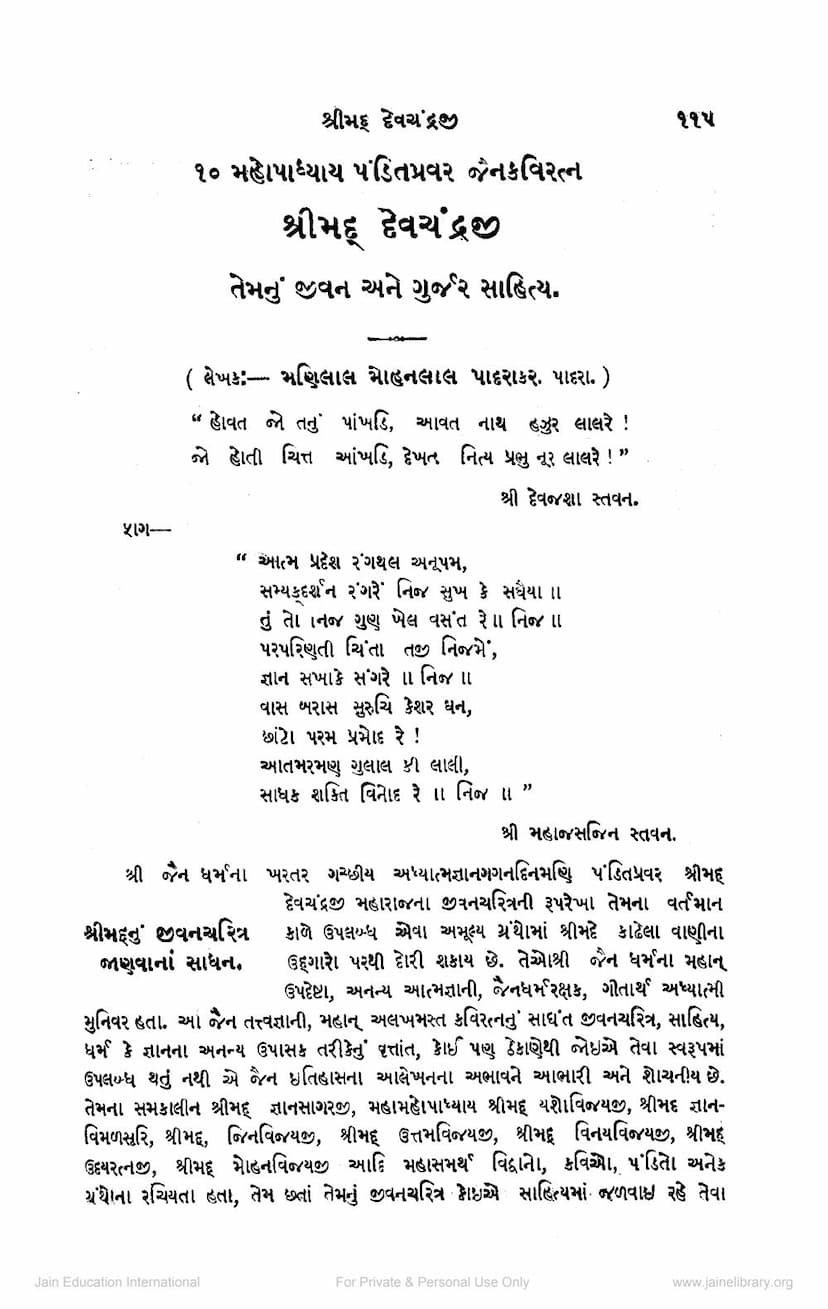 શ્રીમદ્ દેવચંદ્રજી ૧૧૫
૧૦ મહોપાધ્યાય પંડિતપ્રવર જૈનકવિરત્ન
શ્રીમદ્ દેવચંદ્રજી
તેમનું જીવન અને ગુર્જર સાહિત્ય.
( લેખક:— મણિલાલ મોહનલાલ પાદરાકર. પાદરા. )
“ હોવત જો તનું પાંખડિ, આવત નાથ હઝુર લાલરે !
જો હોતી ચિત્ત આંખડિ, દેખત નિત્ય પ્રભુ નૂર લાલરે ! ”
શ્રી દેવજશા સ્તવન.
ફાગ—
“ આત્મ પ્રદેશ રંગથલ અનૂપમ,
સમ્યક્દર્શન રંગરેં નિજ સુખ કે સધૈયા ॥
તું તો નિજ ગુણ ખેલ વસંત રે ॥ નિજ ॥
પરપરિણતી ચિંતા તજી નિજમેં,
જ્ઞાન સખાકે સંગરે ॥ નિજ ॥
વાસ બરાસ સુરુચિ કેશર ઘન,
છાંટો પરમ પ્રમોદ રે !
આતમરમણ ગુલાલ કી લાલી,
સાધક શક્તિ વિનોદ રે ॥ નિજ ॥ ”
શ્રી મહાજસજિન સ્તવન.
શ્રી જૈન ધર્મના ખરતર ગચ્છીય અધ્યાત્મજ્ઞાનગગનદિનમણિ પંડિતપ્રવર શ્રીમદ્
દેવચંદ્રજી મહારાજના જીવનચરિત્રની રૂપરેખા તેમના વર્તમાન
શ્રીમદ્દનું જીવનચરિત્ર કાળે ઉપલબ્ધ એવા અમૂલ્ય ગ્રંથોમાં શ્રીમદે કાઢેલા વાણીના
જાણવાનાં સાધન. ઉદ્દગારો પરથી દોરી શકાય છે. તેઓશ્રી જૈન ધર્મના મહાન્
ઉપદેષ્ટા, અનન્ય આત્મજ્ઞાની, જૈનધર્મરક્ષક, ગીતાર્થ અધ્યાત્મી
મુનિવર હતા. આ જૈન તત્ત્વજ્ઞાની, મહાન્ અલખમસ્ત કવિરત્નનું સાદ્યંત જીવનચરિત્ર, સાહિત્ય,
ધર્મ કે જ્ઞાનના અનન્ય ઉપાસક તરીકેનું વૃત્તાંત, કોઈ પણ ઠેકાણેથી જોઇએ તેવા સ્વરૂપમાં
ઉપલબ્ધ થતું નથી એ જૈન ઇતિહાસના આલેખનના અભાવને આભારી અને શોચનીય છે.
તેમના સમકાલીન શ્રીમદ્ જ્ઞાનસાગરજી, મહામહોપાધ્યાય શ્રીમદ્ યશોવિજયજી, શ્રીમદ જ્ઞાન-
વિમળસૂરિ, શ્રીમદ્, જિનવિજયજી, શ્રીમદ્ ઉત્તમવિજયજી, શ્રીમદ્ વિનયવિજયજી, શ્રીમદ્
ઉદયરત્નજી, શ્રીમદ્ મોહનવિજયજી આદિ મહાસમર્થ વિદ્વાનો, કવિઓ, પંડિતો અનેક
ગ્રંથોના રચિયતા હતા, તેમ છતાં તેમનું જીવનચરિત્ર કોઇએ સાહિત્યમાં જળવાઇ રહે તેવા
Jain Education International For Private & Personal Use Only www.jainelibrary.org